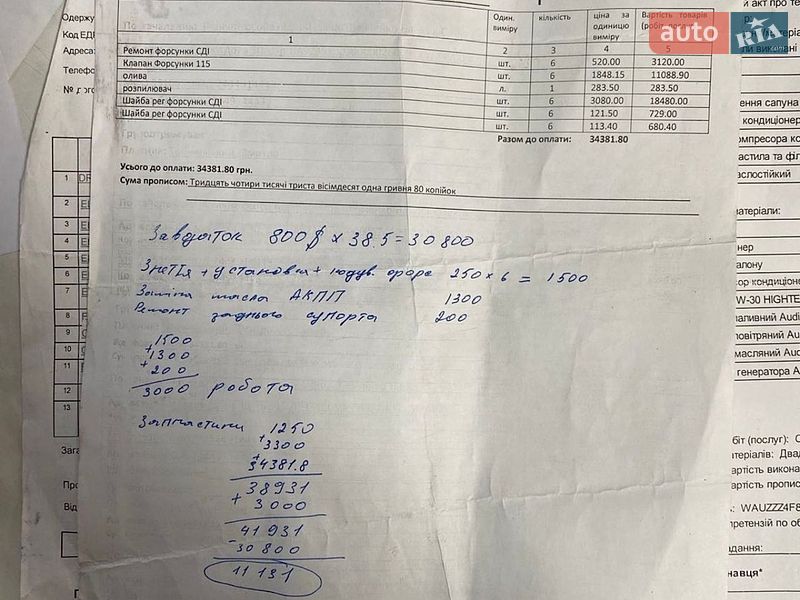 Одерж
Код ЕД
Адреса:
Телефо
auto RIA .com
Один. виміру
кількість
ціна за одиницю виміру
Вартість товарів
1 2 3 4 5
Ремонт форсунки СДІ
Клапан Форсунки 115 шт. 6 520.00 3120.00
олива шт. 6 1848.15 11088.90
розпилювач л. 1 283.50 283.50
Шайба рег форсунки СДІ шт. 6 3080.00 18480.00
Шайба рег форсунки СДІ шт. 6 121.50 729.00
шт. 6 113.40 680.40
Разом до оплати: 34381.80
Усього до оплати: 34381.80 грн.
Сума прописом: Тридцять чотири тисячі триста вісімдесят одна гривня 80 копійок
Завдаток 800$ × 38.5 = 30 800
250 × 6 = 1500
Заміна масла АКПП 1300
Ремонт заднього супорта 200
1500
+1300
+200
3000 робота
Запчастини 1250
+3300
+34381.8
38931
+3000
41931
-30800
11131
1
2
3
4
5
6
7
8
9
10
11
12
13
Зага
Про
Від
ення сапуна
кондиціонер
мпресора ко
астила та філ
аслостійкий
атеріали:
нер
алону
ор кондиціоне
W-30 HIGHTE
паливний Audi
овітряний Au
масляний Aud
генератора A
біт (послуг): С
атеріалів: Двад
артість викона
артість пропис
: WAUZZZ4F8
претензій по об
адання:
навця*